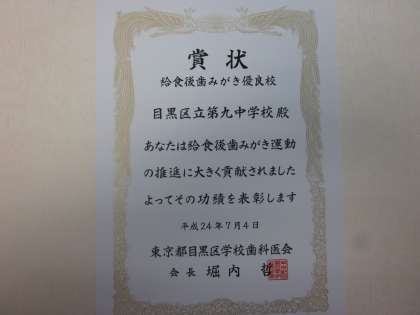 賞状
給食後歯みがき優良校
目黒区立第九中学校 殿
あなたは給食後歯みがき運動
の推進に大きく貢献されました
よってその功績を表彰します
平成24年7月4日
東京都目黒区学校歯科医会
会長 堀内 哲